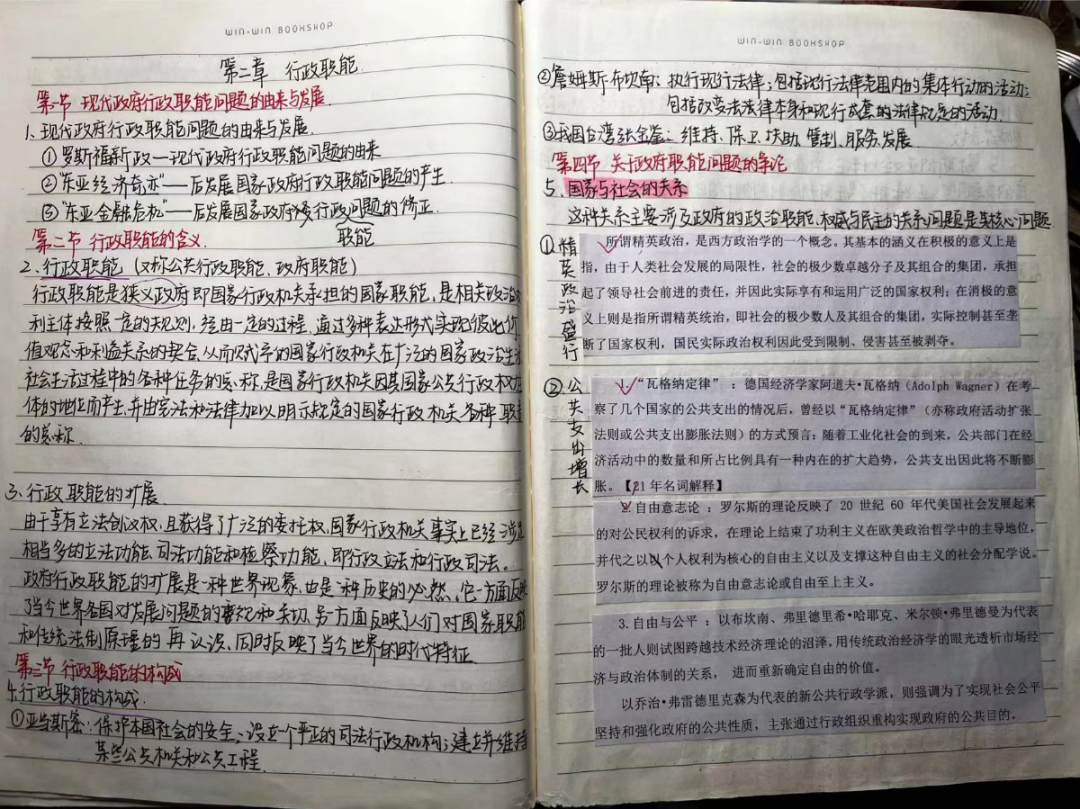 WIN-WIN BOOKSHOP
第二章 行政职能
第一节 现代政府行政职能问题的由来与发展
1、现代政府行政职能问题的由来与发展
①罗斯福新政—现代政府行政职能问题的由来
②"东亚经济奇迹"——后发展国家政府行政职能问题的产生
③"东亚金融危机"——后发展国家政府行政问题的修正
职能
第二节 行政职能的含义
2、行政职能(又称公共行政职能、政府职能)
行政职能是狭义政府即国家行政机关承担的国家职能,是相关政治
利主体按照一定的规则,经由一定的过程,通过多种表达形式实现彼此价
值观念和利益关系的契合,从而赋予的国家行政机关在广泛的国家政治生活
社会生活过程中的各种任务的总称,是国家行政机关因其国家公共行政权力
体的地位而产生,并由宪法和法律加以明示规定的国家行政机关各种职责
的总称
3、行政职能的扩展
由于享有立法创议权,且获得了广泛的委托权,国家行政机关事实上已经涉
相当多的立法功能、司法功能和检察功能,即行政立法和行政司法。
政府行政职能的扩展是一种世界现象,也是一种历史的必然,它一方面反映
了当今世界各国对发展问题的重视和关切,另一方面反映人们对国家职能
和传统法制原理的再认识,同时反映了当今世界的时代特征
第三节 行政职能的构成
4、行政职能的构成
①亚当斯密:保护本国社会的安全、设立一个严正的司法行政机构;建立并维持
某些公共机关和公共工程
WIN-WIN BOOKSHOP
②詹姆斯·布坎南:执行现行法律;包括现行法律范围内的集体行动的活动;
包括改变法律本身和现行成套的法律规定的活动
③我国台湾张金鉴:维持、保卫、扶助、管制、服务、发展
第四节 关于政府职能问题的争论
5、国家与社会的关系
这种关系主要涉及政府的政治职能,权威与民主的关系问题是其核心问题
①精英政治盛行
所谓精英政治,是西方政治学的一个概念。其基本的涵义在积极的意义上是
指,由于人类社会发展的局限性,社会的极少数卓越分子及其组合的集团,承担
起了领导社会前进的责任,并因此实际享有和运用广泛的国家权利;在消极的意
义上则是指所谓精英统治,即社会的极少数人及其组合的集团,实际控制甚至垄
断了国家权利,国民实际政治权利因此受到限制、侵害甚至被剥夺。
②公共支出增长
1."瓦格纳定律":德国经济学家阿道夫·瓦格纳(Adolph Wagner)在考
察了几个国家的公共支出的情况后,曾经以"瓦格纳定律"(亦称政府活动扩张
法则或公共支出膨胀法则)的方式预言:随着工业化社会的到来,公共部门在经
济活动中的数量和所占比例具有一种内在的扩大趋势,公共支出因此将不断膨
胀。【21年名词解释】
2.自由意志论:罗尔斯的理论反映了 20 世纪 60 年代美国社会发展起来
的对公民权利的诉求,在理论上结束了功利主义在欧美政治哲学中的主导地位,
并代之以个人权利为核心的自由主义以及支撑这种自由主义的社会分配学说。
罗尔斯的理论被称为自由意志论或自由至上主义。
3.自由与公平:以布坎南、弗里德里希·哈耶克、米尔顿·弗里德曼为代表
的一批人则试图跨越技术经济理论的沼泽,用传统政治经济学的眼光透析市场经
济与政治体制的关系, 进而重新确定自由的价值。
以乔治·弗雷德里克森为代表的新公共行政学派,则强调为了实现社会公平
坚持和强化政府的公共性质,主张通过行政组织重构实现政府的公共目的。